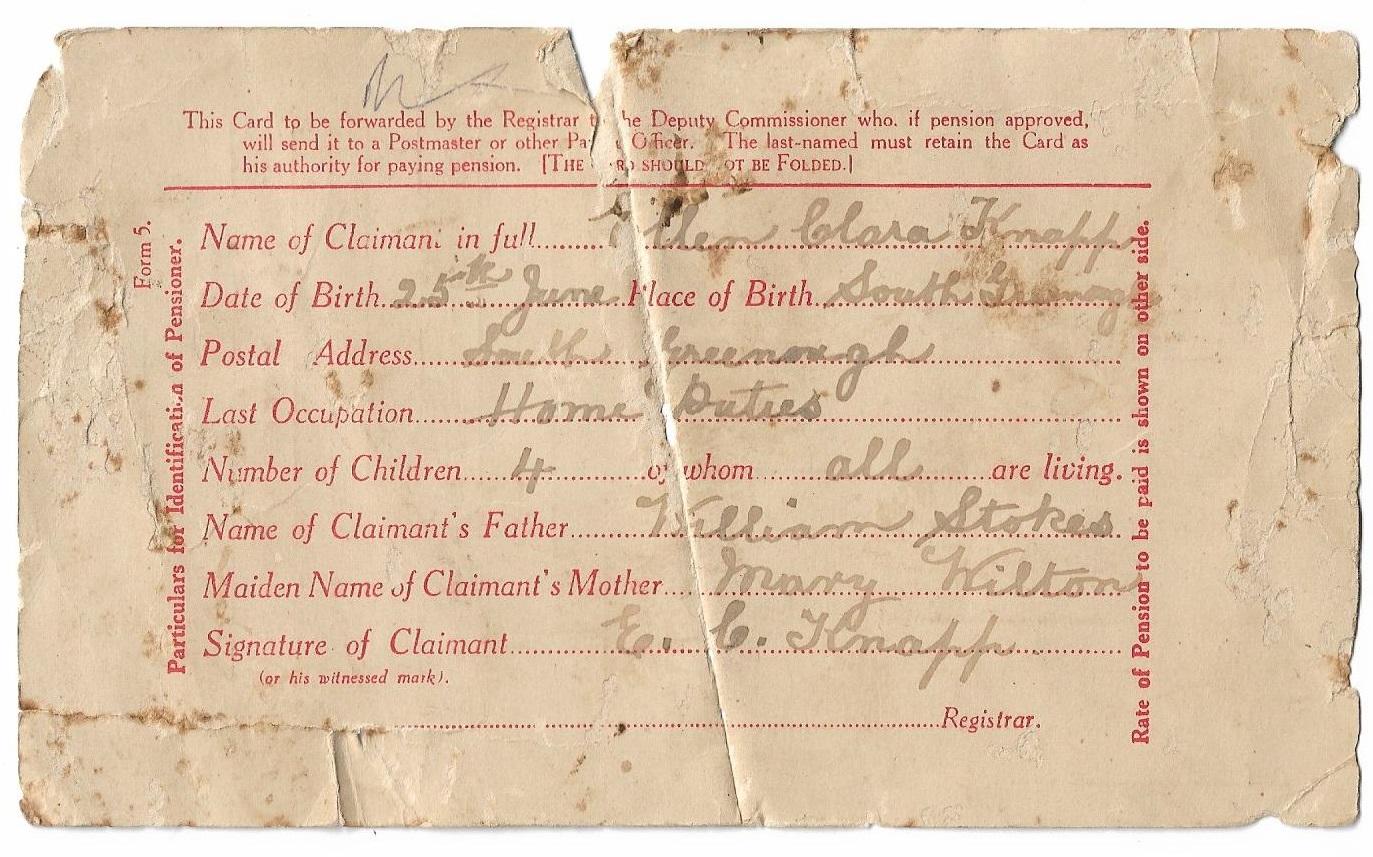 This Card to be forwarded by the Registrar t he Deputy Commissioner who. if pension approved,
will send it to a Postmaster or other Pa Officer. The last-named must retain the Card as
his authority for paying pension. [THE RD SHOULD OT BE FOLDED.]
Form 5.
Particulars for Identification of Pensioner.
Name of Claimant in full........ Ellen Clara Knapp
Date of Birth 25th June Place of Birth South Greenough
Postal Address South Greenough
Last Occupation Home Duties
Number of Children 4 of whom all are living.
Name of Claimant's Father William Stokes
Maiden Name of Claimant's Mother Mary Wilton
Signature of Claimant E. C. Knapp
(or his witnessed mark).
Registrar.
Rate of Pension to be paid is shown on other side.